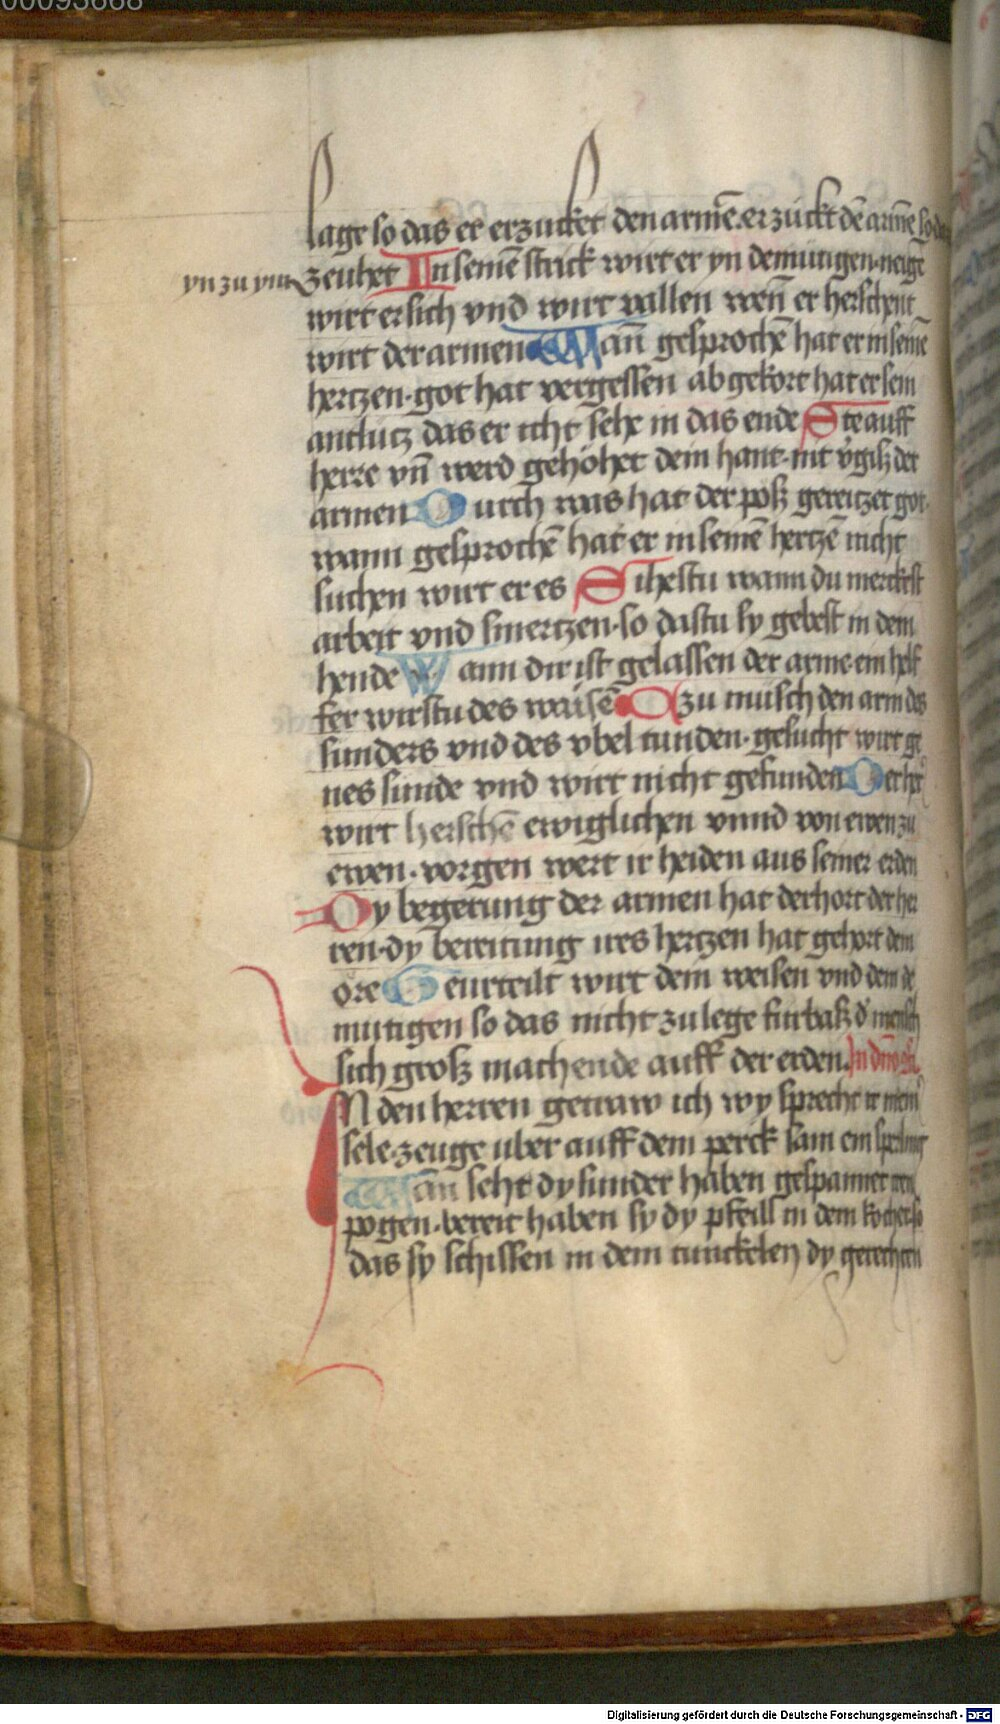 00093668
lage so das er erzucket den armē. er zückt dē armē so das
yn zu ym zeuhet In seinē strick wirt er yn demutigen. neige
wirt er sich vnd wirt vallen wen̄ er herschent
wirt der armen Wan̄ gesprochē hat er in seinē
hertzen. got hat vergessen abgekort hat er sein
antlutz das er icht sehe in das ende Ste auff
herre vn̄ werd gehöhet dein hant. nit v̉giß der
armen Durch was hat der poß gereitzet got.
wann gesprochē hat er in seinē hertzē nicht
suchen wirt er es Sihestu wann du merckest
arbeit vnd smertzen. so dastu sy gebest in dein
hende Wann dir ist gelassen der arme. ein helf
fer wirstu des waisē Dzu mülsch den arm des
sunders vnd des vbeltunden. gesucht wirt ge
nes sunde vnd wirt nicht gefunden Der her̉
wirt herschē ewiglichen vnnd von ewen zu
ewen. vorgen wert ir heiden aus seiner erden
Dy begerung der armen hat derhort der her
ren. dy bereitung ires hertzen hat gehort dein
ore Geurteilt wirt dem weisen vnd dem de
mutigen so das nicht zulege furbaß d̉ mensch
sich groß machende auff der erden. In dn̄o 9fi.
IN den herren getraw ich wy sprecht ir meinr̉
sele. zeuge uber auff dem perck sam ein sperling
Wan̄ seht dy sunder haben gespannet iren
pogen. bereit haben sy dy pfeill in dem kocher. so
das sy schissen in dem tunckelen dy gerechten
Digitalisierung gefördert durch die Deutsche Forschungsgemeinschaft - DFG